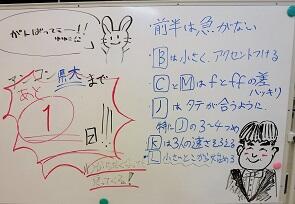 がんばってー!!
マンコン県大まで
あと
1
日!!
前半は急がない
Bは小さく、アクセントつける
CとMはfとffの差
ハッキリ
Jはタテが合うように
特にJの3〜4つめ
Kは3人の速さをそろえる
Lは小さいとこから始める